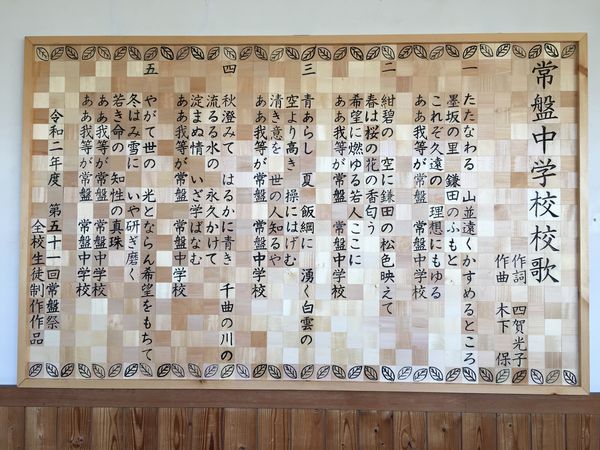 常盤中学校校歌
作詞 四賀光子
作曲 木下 保
一 たたなわる 山並遠くかすめるところ
墨坂の里 鎌田のふもと
これぞ久遠の 理想にもゆる
ああ我等が常盤 常盤中学校
二 紺碧の 空に鎌田の松色映えて
春は桜の花の香匂う
希望に燃ゆる若人ここに
ああ我等が常盤 常盤中学校
三 青あらし 夏 飯綱に 湧く白雲の
空より高き 操にはげむ
清き意を 世の人知るや
ああ我等が常盤 常盤中学校
四 秋澄みて はるかに青き 千曲の川の
流るる水の 永久かけて
淀まぬ情 いざ学ばなむ
ああ我等が常盤 常盤中学校
五 やがて世の 光とならん希望をもちて
冬はみ雪に いや研ぎ磨く
若き命の 知性の真珠
ああ我等が常盤 常盤中学校
ああ我等が常盤 常盤中学校
令和二年度 第五十一回常盤祭
全校生徒制作作品